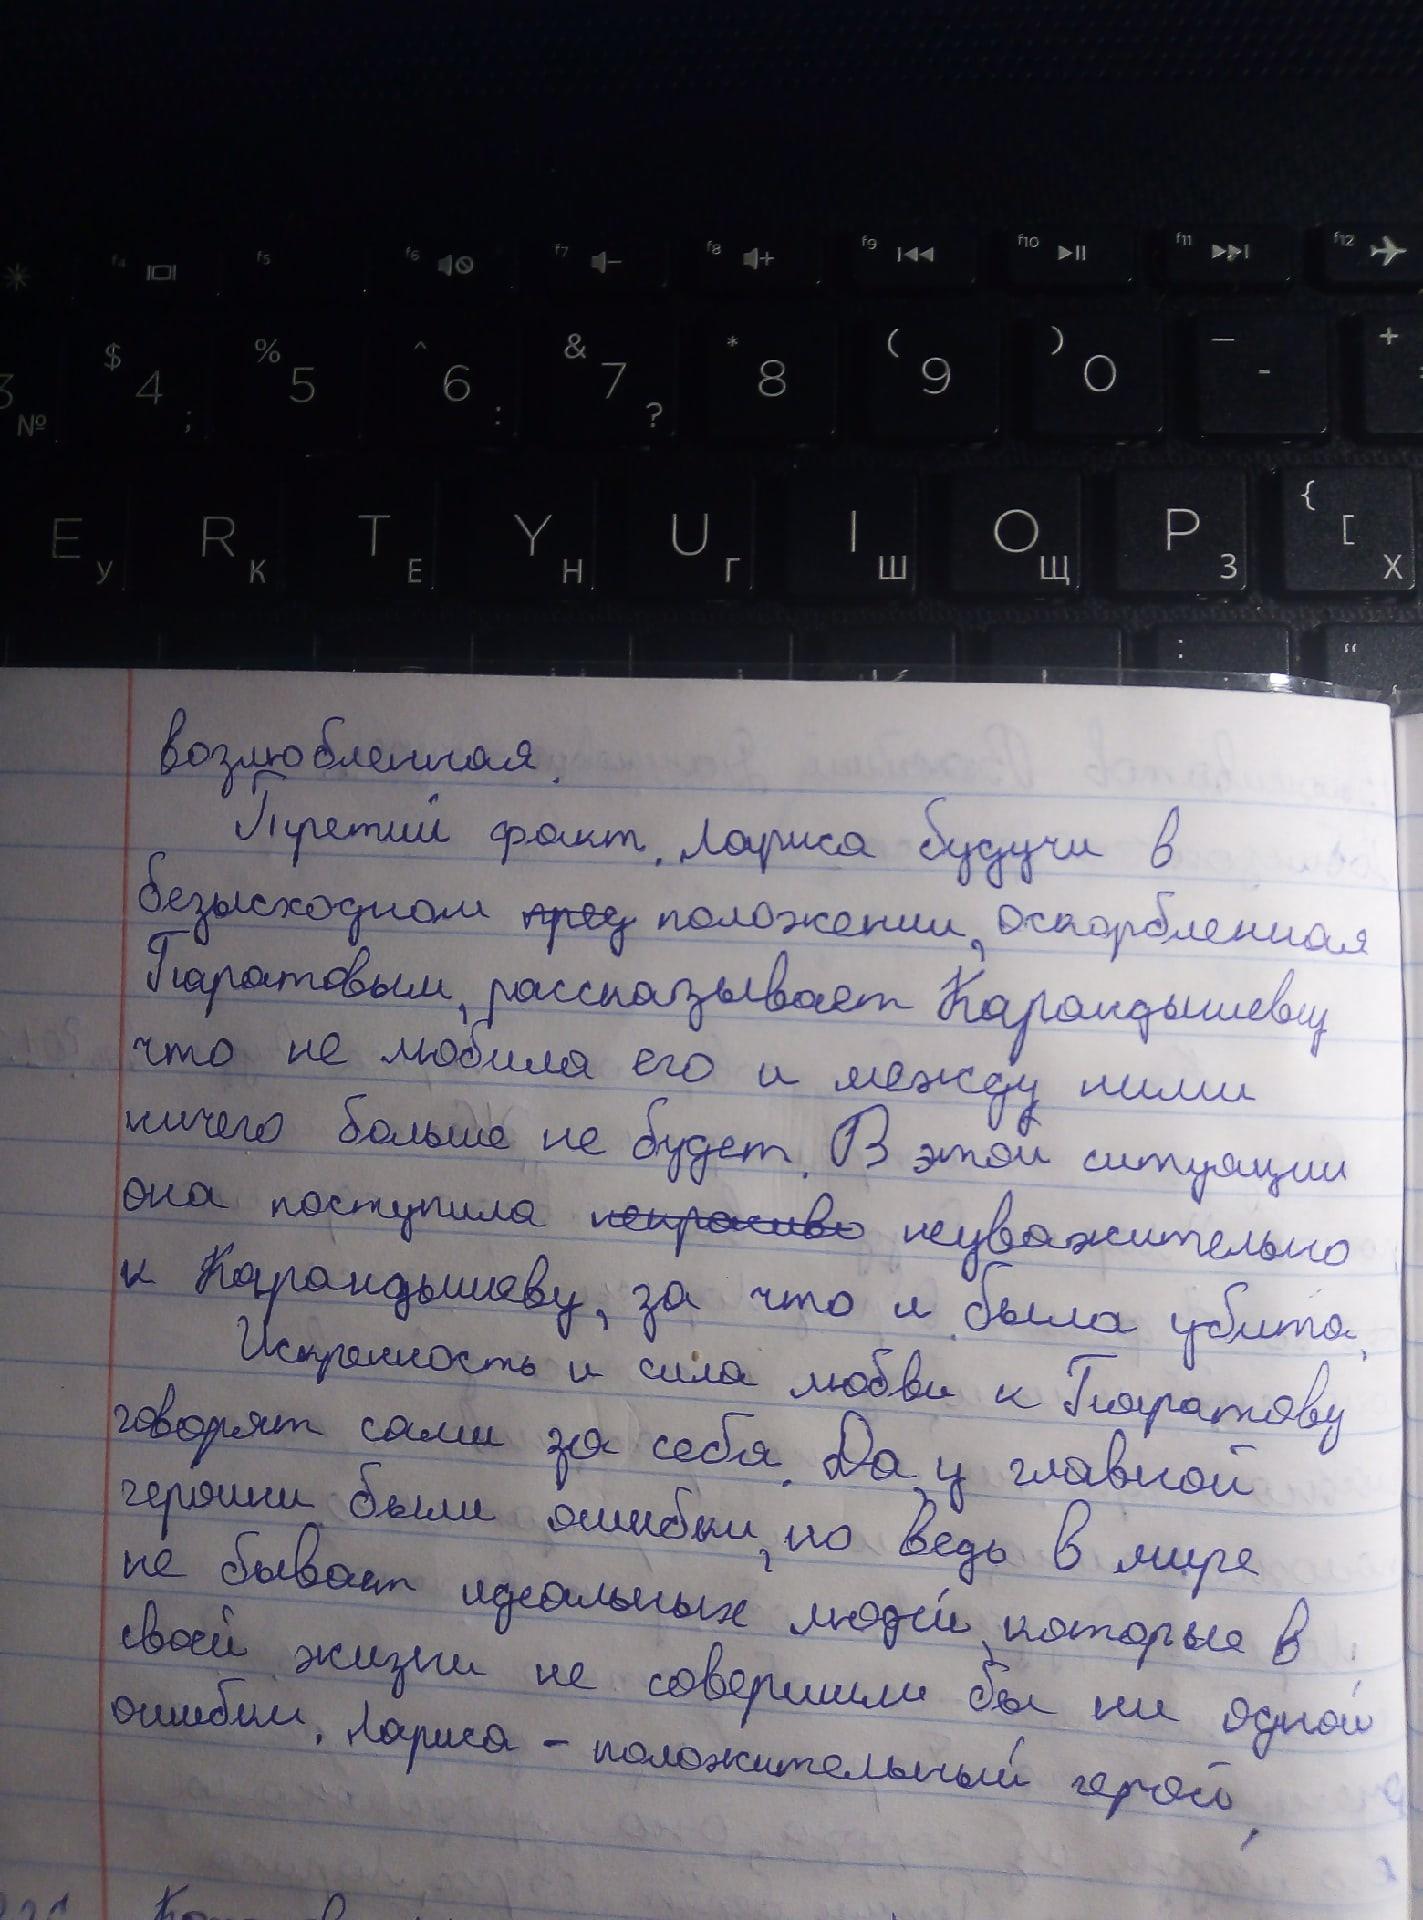 f4 f5 f6 f7 f8 f9 f10 f11 f12
$ 4 ; % 5 ^ 6 : & 7 ? * 8 ( 9 ) 0 _ - +
3 №
E У R К T Е Y Н U Г I Ш O Щ P З { [ Х
: “
возлюбленная.
Третий факт. Лариса будучи в
безысходном пред положении, оскорбленная
Паратовым, рассказывает Карандышеву
что не любила его и между ними
ничего больше не будет. В этой ситуации
она поступила некрасиво неуважительно
к Карандышеву, за что и была убита.
Искренность и сила любви к Паратову
говорят сами за себя. Да, у главной
героини были ошибки, но ведь в мире
не бывает идеальных людей, которые в
своей жизни не совершили бы ни одной
ошибки. Лариса - положительный герой,